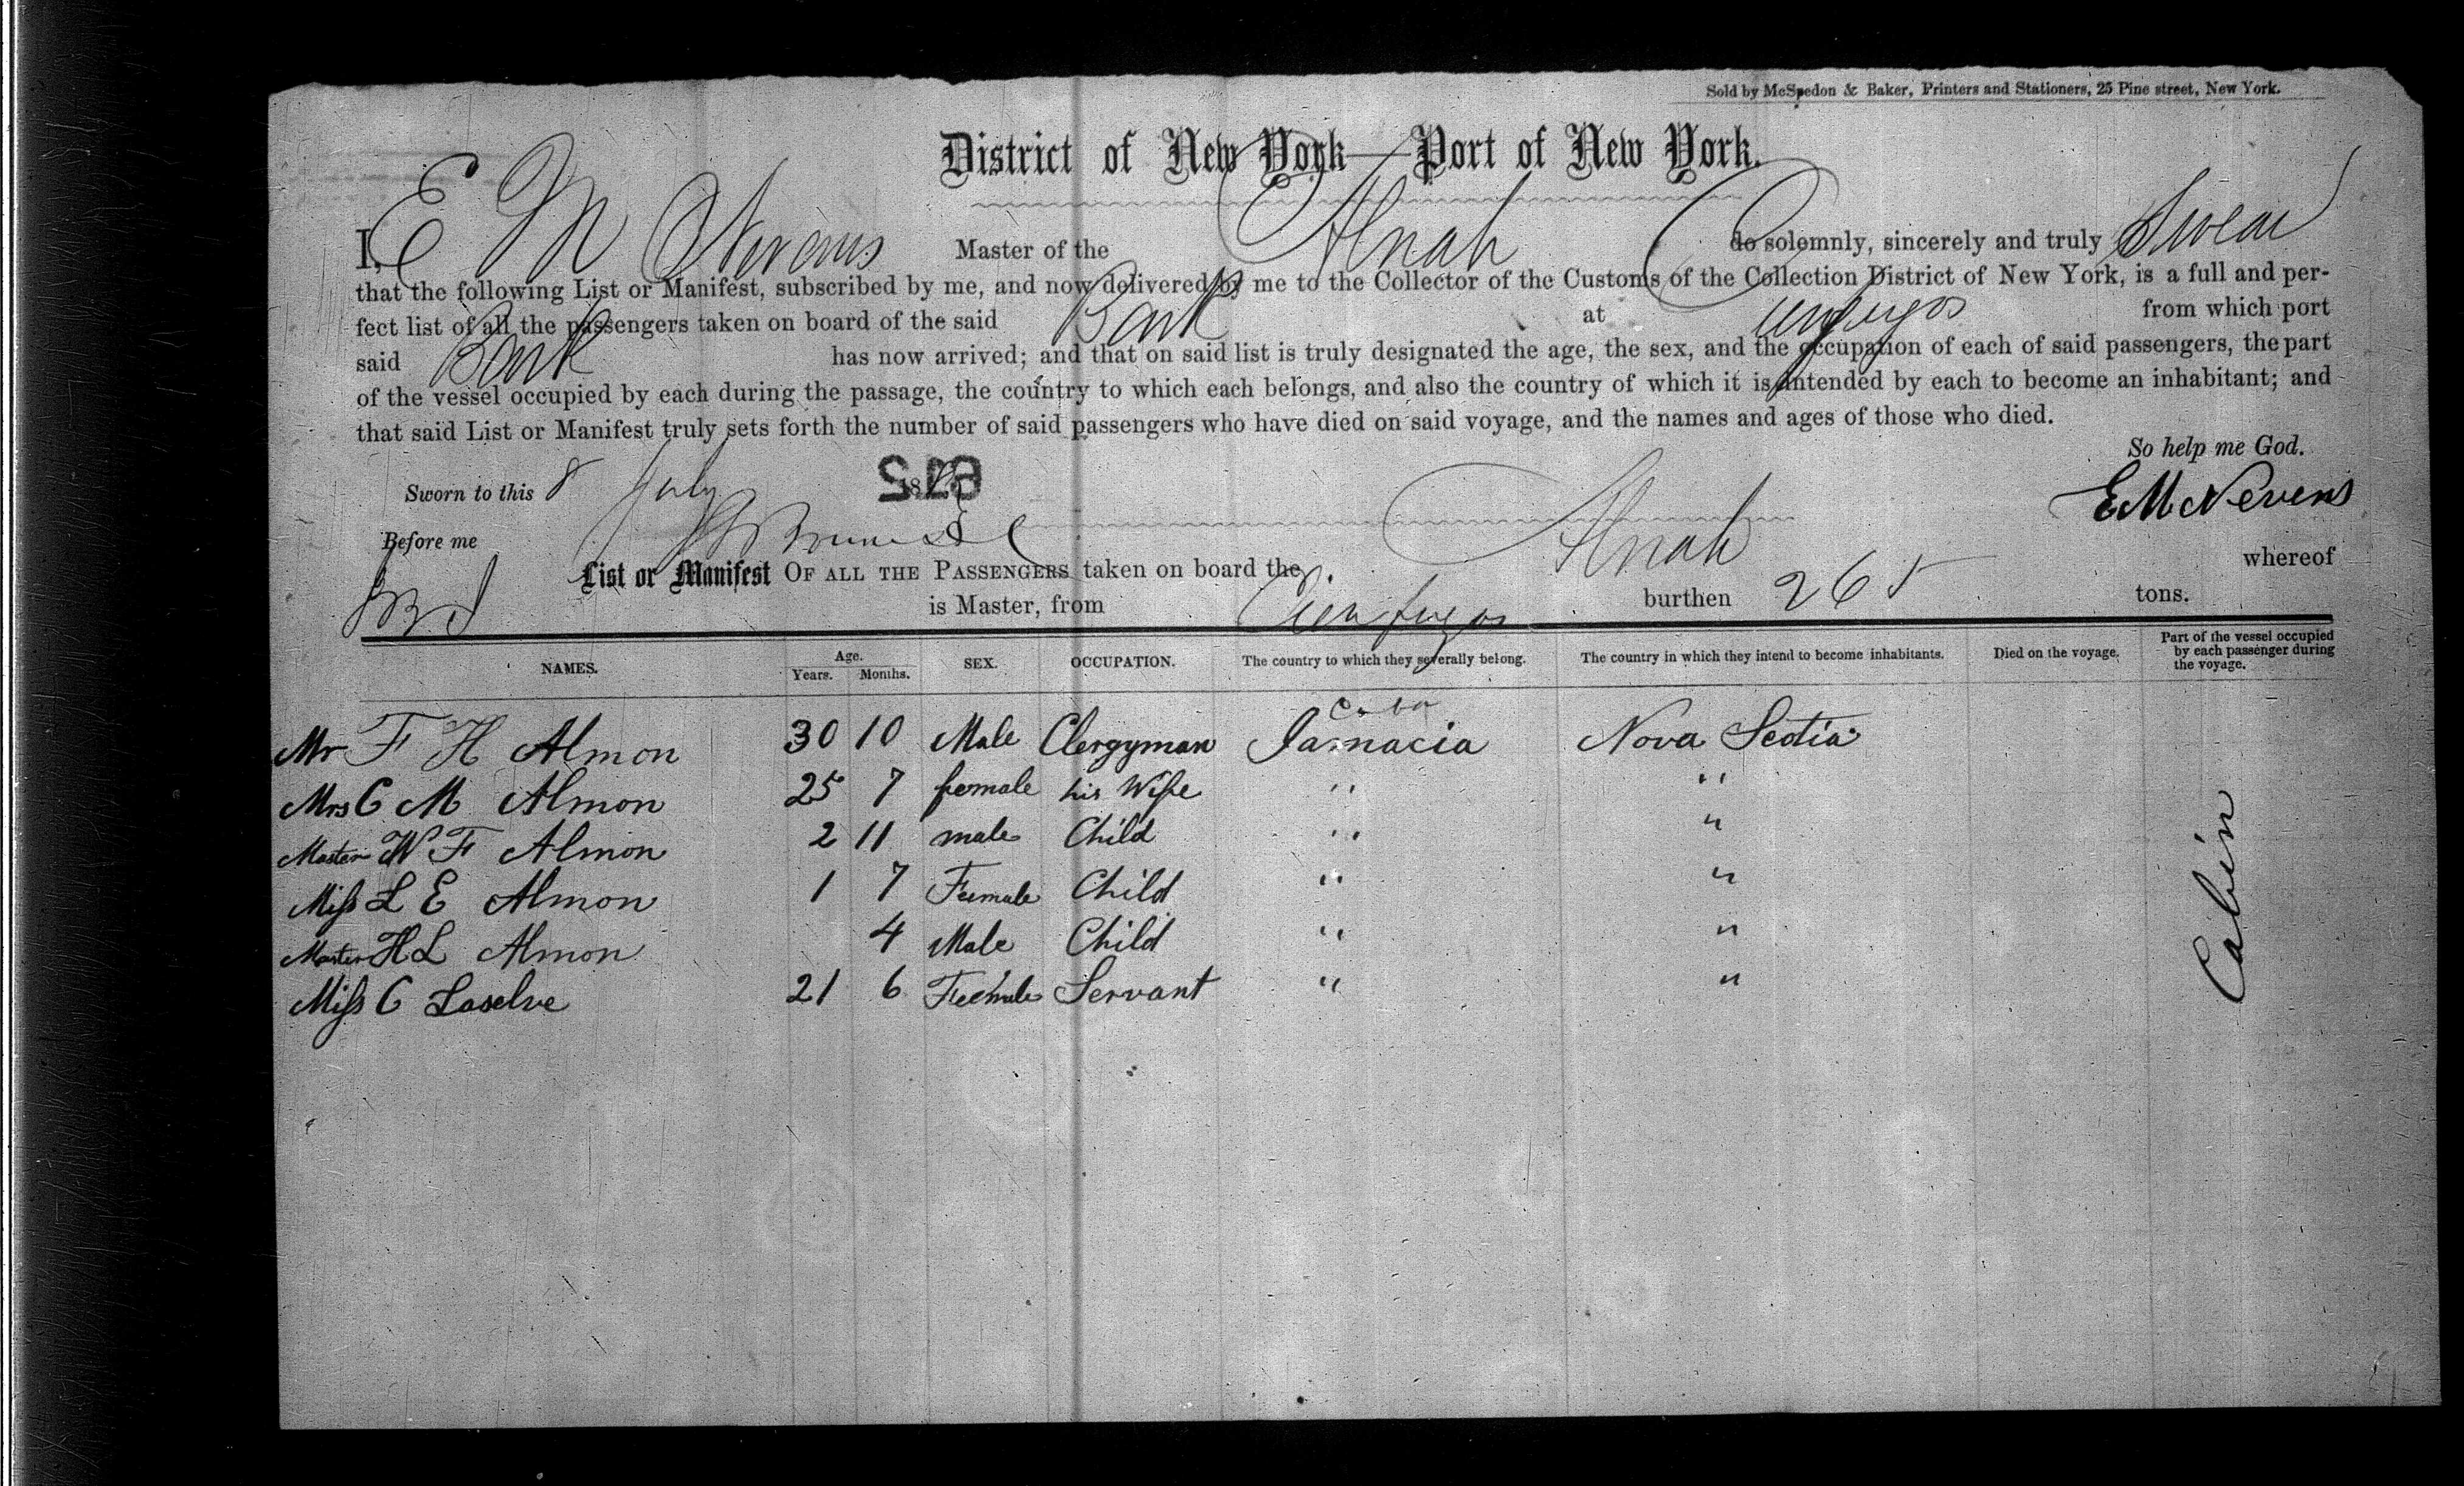 Sold by McSpedon & Baker, Printers and Stationers, 25 Pine street, New York.
District of New York—Port of New York.
I, E M Nevens Master of the Alnah do solemnly, sincerely and truly Swear
that the following List or Manifest, subscribed by me, and now delivered by me to the Collector of the Customs of the Collection District of New York, is a full and per-
fect list of all the passengers taken on board of the said Bark at Cienfuegos from which port
said Bark has now arrived; and that on said list is truly designated the age, the sex, and the occupation of each of said passengers, the part
of the vessel occupied by each during the passage, the country to which each belongs, and also the country of which it is intended by each to become an inhabitant; and
that said List or Manifest truly sets forth the number of said passengers who have died on said voyage, and the names and ages of those who died.
So help me God.
Sworn to this 8 July 18
E M Nevens
Before me
List or Manifest OF ALL THE PASSENGERS taken on board the Alnah whereof
is Master, from Cienfuegos burthen 265 tons.
NAMES. Age. Years. Months. SEX. OCCUPATION. The country to which they severally belong. The country in which they intend to become inhabitants. Died on the voyage. Part of the vessel occupied by each passenger during the voyage.
Cuba
Mr F H Almon 30 10 Male Clergyman Jamacia Nova Scotia
Mrs C M Almon 25 7 female his Wife " "
Master W F Almon 2 11 male Child " "
Miss L E Almon 1 7 Female Child " "
Master H L Almon 4 Male Child " "
Miss C Laselve 21 6 Feemale Servant " "
Cabin